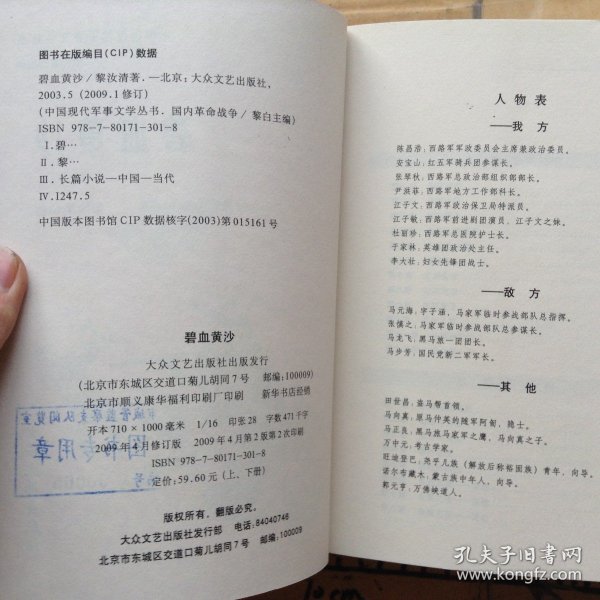 图书在版编目(CIP)数据
碧血黄沙/黎汝清著.—北京:大众文艺出版社,
2003.5(2009.1修订)
(中国现代军事文学丛书.国内革命战争/黎白主编)
ISBN 978-7-80171-301-8
Ⅰ.碧…
Ⅱ.黎…
Ⅲ.长篇小说—中国—当代
Ⅳ.I247.5
中国版本图书馆CIP数据核字(2003)第015161号
碧血黄沙
大众文艺出版社出版发行
(北京市东城区交道口菊儿胡同7号 邮编:100009)
北京市顺义康华福利印刷厂印刷 新华书店经销
开本710×1000毫米 1/16 印张28 字数471千字
2009年4月修订版 2009年4月第2版第2次印刷
ISBN 978-7-80171-301-8
定价:59.60元(上、下册)
版权所有,翻版必究。
大众文艺出版社发行部 电话:84040746
北京市东城区交道口菊儿胡同7号 邮编:100009
图书专用章
人物表
——我方
陈昌浩:西路军军政委员会主席兼政治委员。
安宝山:红五军骑兵团参谋长。
张琴秋:西路军总政治部组织部部长。
尹洪菲:西路军地方工作部科长。
江子文:西路军政治保卫局特派员。
江子敏:西路军前进剧团演员,江子文之妹。
杜丽珍:西路军总医院护士长。
于家林:英雄团政治处主任。
李大壮:妇女先锋团战士。
——敌方
马元海:字子涵,马家军临时参战部队总指挥。
张慎之:马家军临时参战部队总参谋长。
马龙飞:黑马旅一团团长。
马步芳:国民党新二军军长。
——其他
田世昌:盗马帮首领。
马向真:原马仲英的随军阿訇,隐士。
马正良:黑马旅马家军之鹰,马向真之子。
万中元:考古学家。
旺地登巴:尧乎儿族(解放后称裕固族)青年,向导。
诺尔布藏木:蒙古族中年人,向导。
郭元亨:万佛峡道人。
10cm
孔夫子旧书网
www.kongfz.com